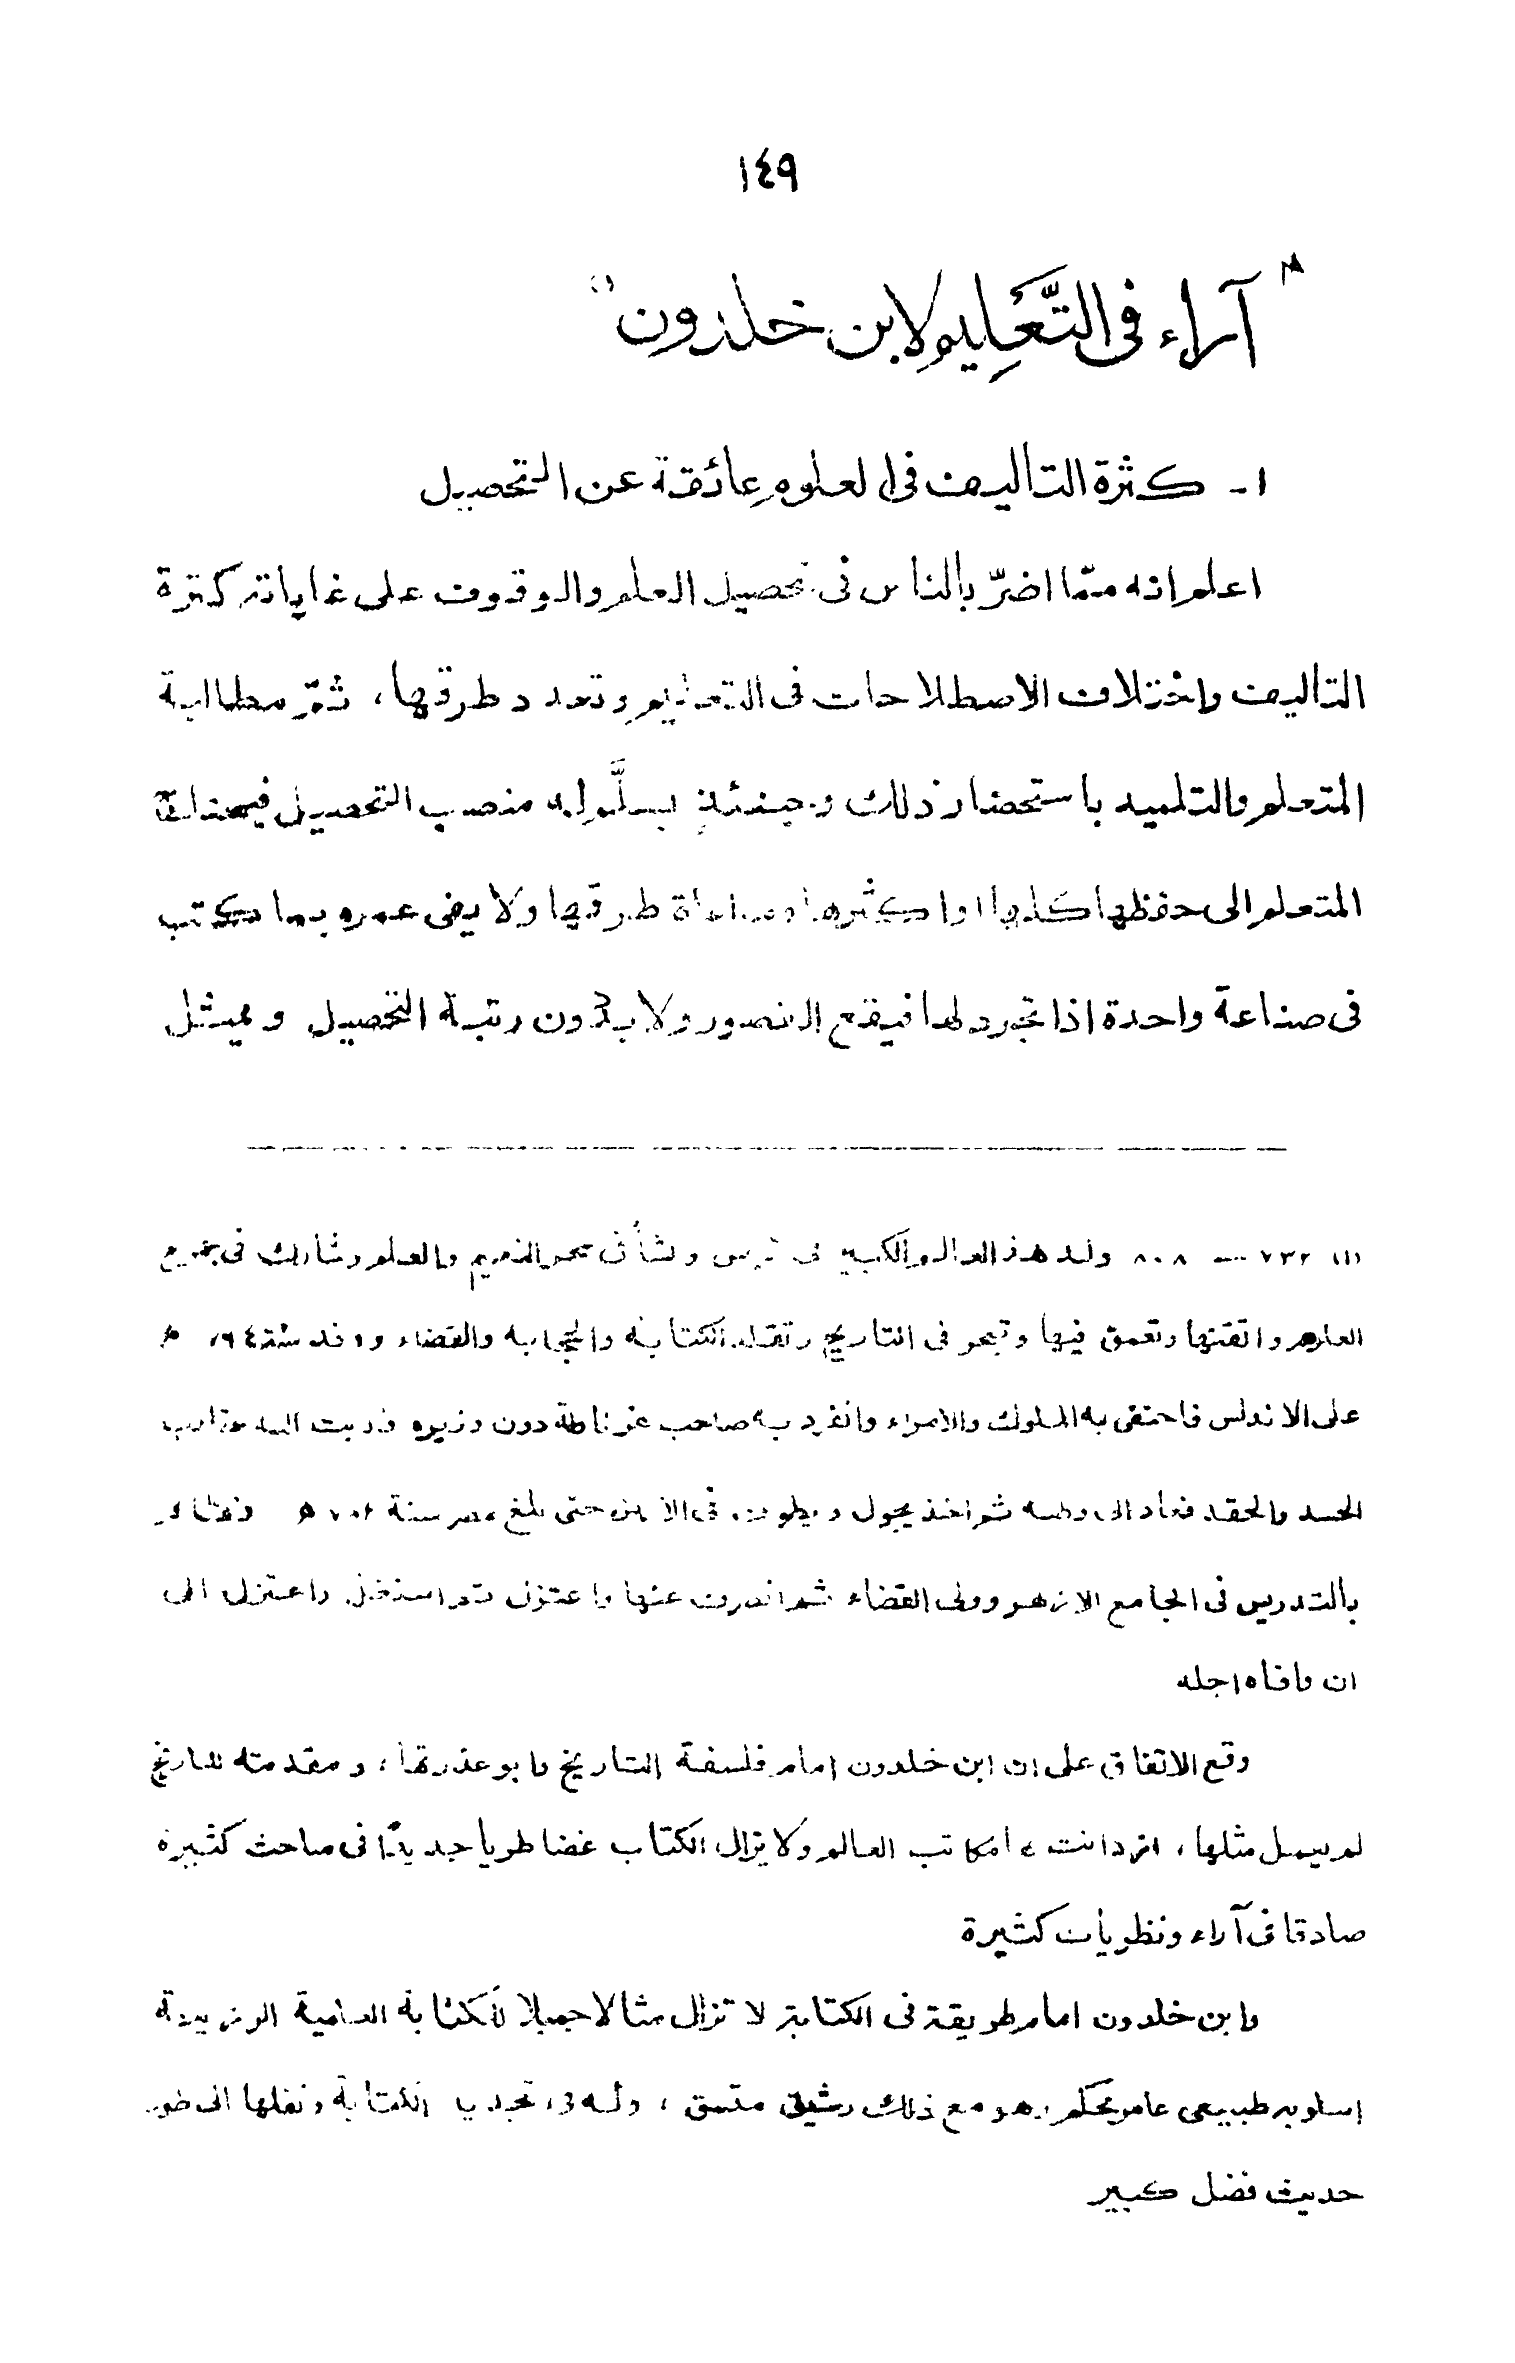 ١٤٩
آراء فى التَّعَلِيم لابن خلدون (١)
١ - كثرة التاليف فى العلوم عائقة عن التحصيل
اعلم انه ممّا اضرّ بالناس فى تحصيل العلم والوقوف على غاياته كثرة
التاليف واختلاف الاصطلاحات فى التعليم وتعدد طرقها، ثمّ مطالبة
المتعلم والتلميذ باستحضار ذلك وحينئذٍ يسلَّم له منصب التحصيل فيحتاج
المتعلم الى حفظها كلها او اكثرها ومراعاة طرقها ولا يفى عمره بما كتب
فى صناعة واحدة اذا تجرد لها فيقع القصور ولا بدّ دون رتبة التحصيل ويمثل
(١) ٧٣٢ — ٨٠٨ ولد هذا العالم الكبير فى تونس ونشأ فى حجر النعيم والعلم وشارك فى جميع
العلوم واتقنها وتعمق فيها وتبحر فى التاريخ وتقلد الكتابة والحجابة والقضاء ووفد سنة ٧٦٤ ه
على الاندلس فاحتفى به الملوك والامراء وانفرد به صاحب غرناطة دون وزيره فدبت اليه عقارب
الحسد والحقد فعاد الى وطنه ثم اخذ يجول ويطوف فى الارض حتى بلغ مصر سنة ه
بالتدريس فى الجامع الازهر وولى القضاء ثم انصرف عنها واعتزل ثم واعتزل الى
ان وافاه اجله
وقع الاتفاق على ان ابن خلدون امام فلسفة التاريخ وابو عذرتها، ومقدمته للتاريخ
لم يعمل مثلها، ازدانت بها مكاتب العالم ولا يزال الكتاب غضا طريا جديدًا فى مباحث كثيرة
صادقا فى آراء ونظريات كثيرة
وابن خلدون امام طريقة فى الكتابة لا تزال مثالا جميلا للكتابة العلمية الرزينة
اسلوبه طبيعى عامر محكم وهو مع ذلك رشيق متسق، وله فى تجديد الكتابة ونقلها الى طور
حديث فضل كبير